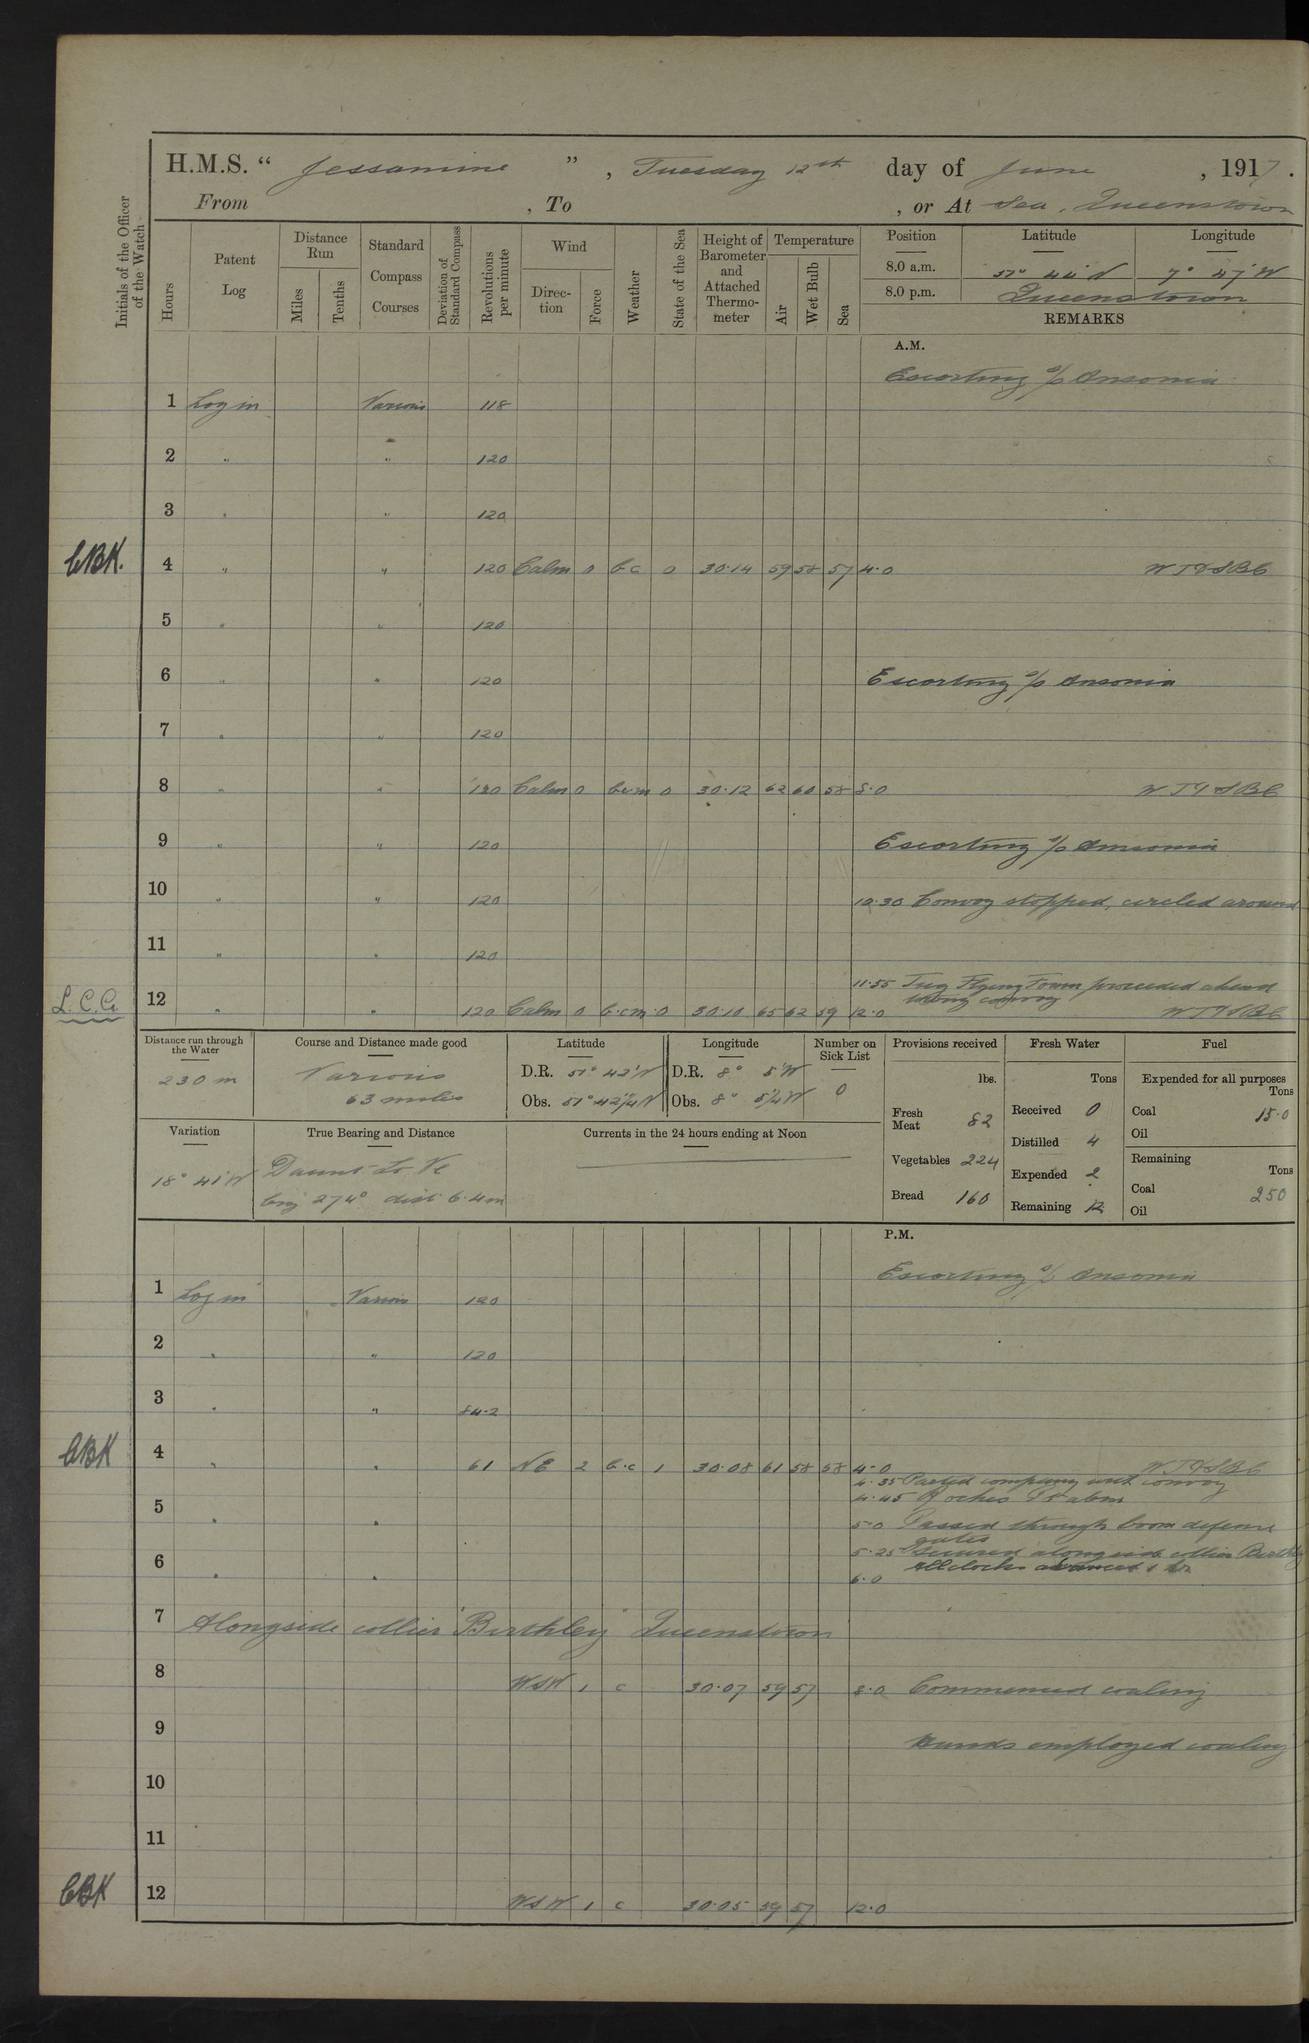 H.M.S. “ Jessamine ” , Tuesday 12th day of June , 1917 .
From , To , or At Sea, Queenstown
Initials of the Officer of the Watch
Hours
Patent Log
Distance Run
Miles
Tenths
Standard Compass Courses
Deviation of Standard Compass
Revolutions per minute
Wind
Direction
Force
Weather
State of the Sea
Height of Barometer and Attached Thermometer
Temperature
Air
Wet Bulb
Sea
Position Latitude Longitude
8.0 a.m. 51° 44' N 7° 47' W
8.0 p.m. Queenstown
REMARKS
A.M.
Escorting s/s Ansonia
1 Log in Various 118
2 " " 120
3 " " 120
CBK. 4 " " 120 Calm 0 b.c 0 30.14 59 58 57 4.0 W T & S B C
5 " " 120
6 " " 120 Escorting s/s Ansonia
7 " " 120
8 " " 120 Calm 0 bcm 0 30.12 62 60 58 8.0 W T & S B C
9 " " 120 Escorting s/s Ansonia
10 " " 120 10.30 Convoy stopped, circled around
11 " " 120
11.55 Tug Flying proceeded ahead
convoy
L.C.G. 12 " " 120 Calm 0 b.cm 0 30.10 65 62 59 12.0 W T & S B C
Distance run through the Water
230 m
Course and Distance made good
Various
63 miles
Latitude
D.R. 51° 42' N
Obs. 51° 42 1/4 N
Longitude
D.R. 8° 5' W
Obs. 8° 5 1/4 W
Number on Sick List
0
Provisions received
lbs.
Fresh Meat 82
Vegetables 224
Bread 160
Fresh Water
Tons
Received 0
Distilled 4
Expended 2
Remaining 12
Fuel
Expended for all purposes
Tons
Coal 15.0
Oil
Remaining
Tons
Coal 250
Oil
Variation
18° 41' W
True Bearing and Distance
Daunt Lt. Ve
brg 274° dist 6.4 m
Currents in the 24 hours ending at Noon
P.M.
Escorting s/s Ansonia
1 Log in Various 120
2 " " 120
3 " " 84.2
CBK 4 " " 61 NE 2 b.c 1 30.08 61 58 58 4.0 W T & S B C
4.35 Parted company with convoy
4.45 Roches Pt abm
5 " " 5.0 Passed through boom defence
gates
5.25 Secured alongside collier Birthley
6 " " 6.0 All clocks advanced 1 hr
7 Alongside collier "Birthley" Queenstown
8 WSW 1 c 30.07 59 57 8.0 Commenced coaling
9 Hands employed coaling
10
11
CBK 12 WSW 1 c 30.05 59 57 12.0